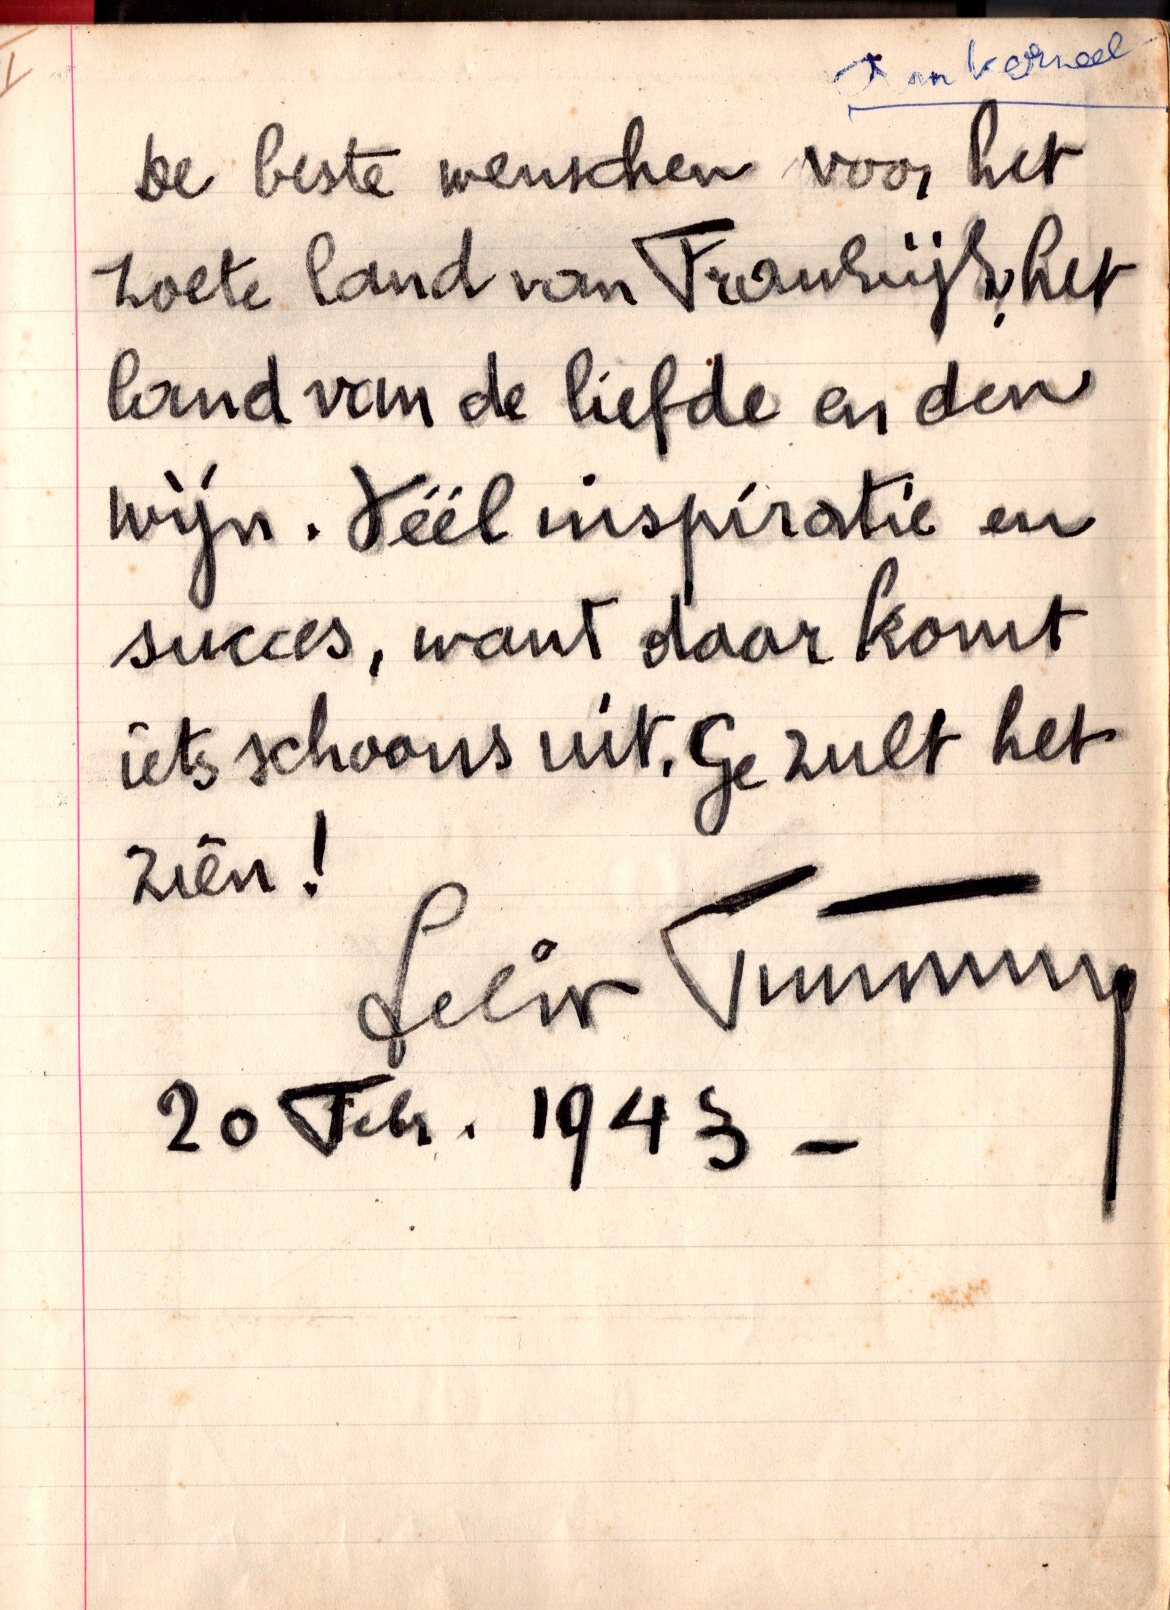 Jan Verneel
De beste wenschen voor het
zoete land van Frankrijk, het
land van de liefde en den
wijn. Véél inspiratie en
succes, want daar komt
iets schoons uit. Ge zult het
zien!
Felix Timmermans
20 Febr. 1943 -